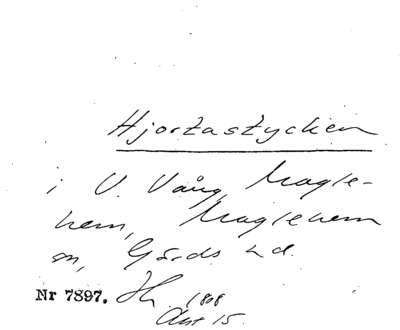 Hjortastycken
i V. Vång, Magle-
hem, Maglehem
sn, Gärds hd.
Nr 7897. Jh. 1808
Akt 15.